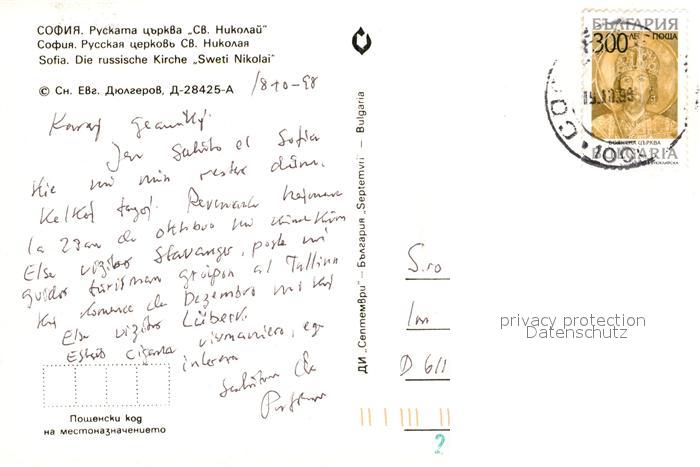 СОФИЯ. Руската църква „Св. Николай"
София. Русская церковь Св. Николая
Sofia. Die russische Kirche „Sweti Nikolai"
© Сн. Евг. Дюлгеров, Д-28425-А
18-10-98
Karaj
Jen Saluto el Sofia
kie mi
Kelkaj tagoj. Revenante hejmen
la 27an de oktobro mi
Else vizitos Stavanger, poste mi
gvidos turisman grupon al Tallinn
Kaj komence de Dezembro mi kaj
Else vizitos Lübeck.
Estas
interesa
ДИ „Септември" — България „Septemvri" — Bulgaria
Пощенски код
на местоназначението
БЪЛГАРИЯ
300 ЛВ ПОЩА
БОЯНСКА ЦЪРКВА
BULGARIA
S.ro
Im
D 611
privacy protection
Datenschutz
2